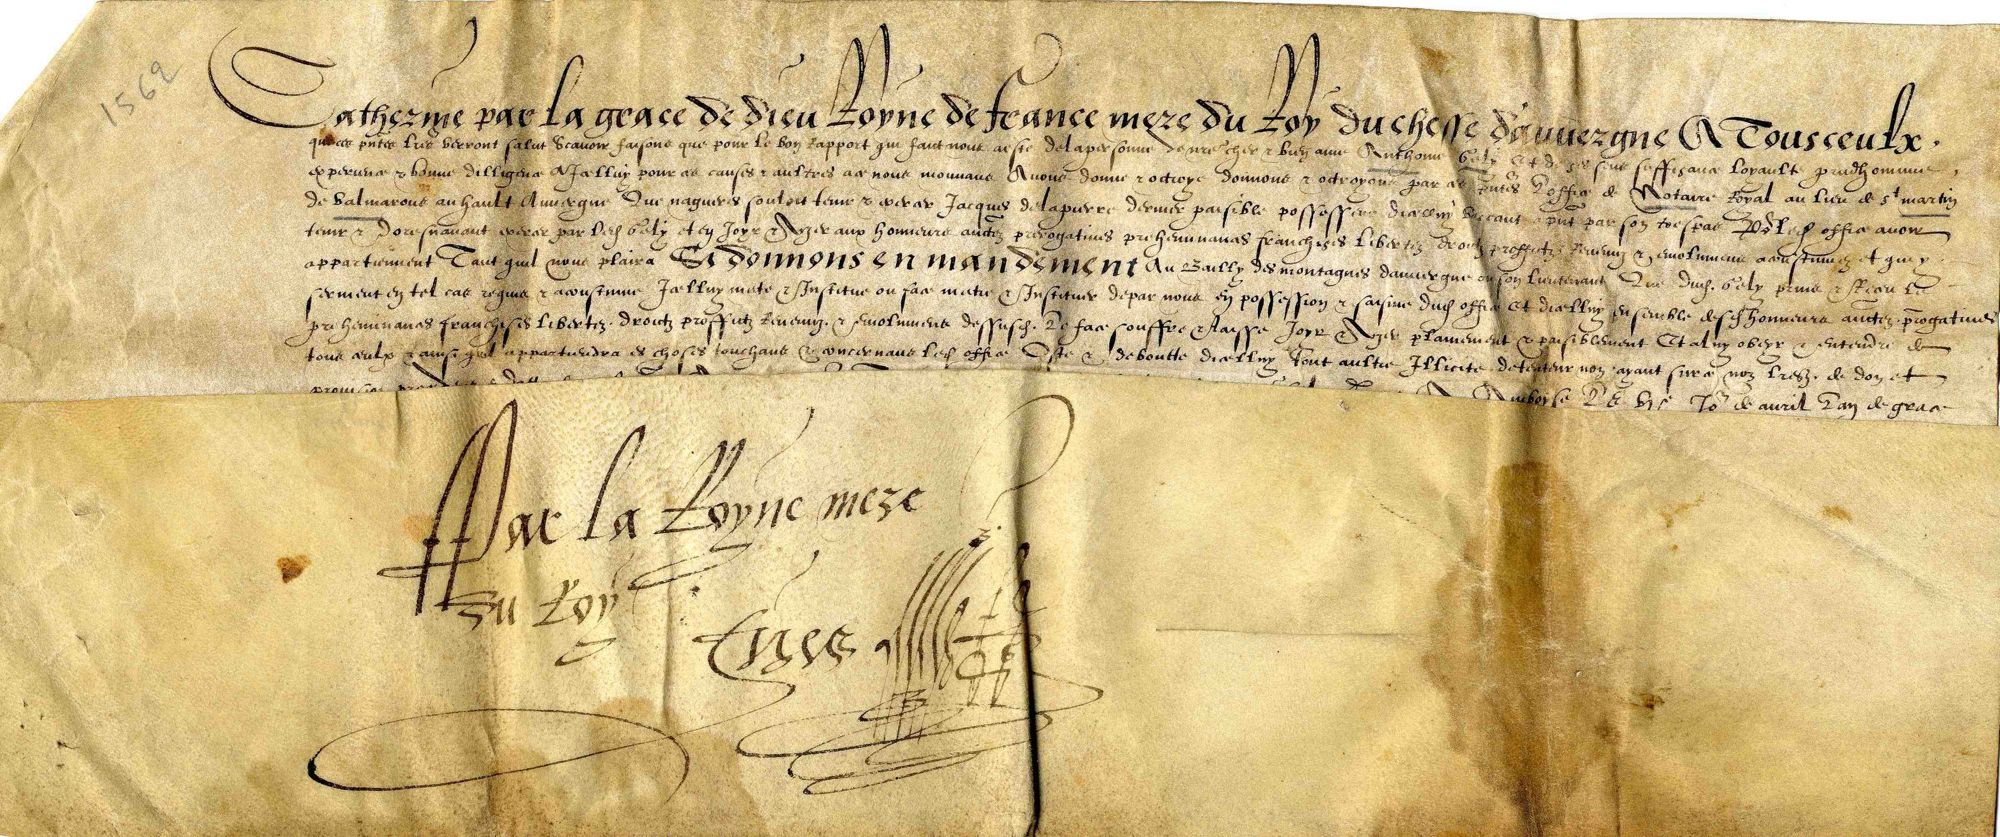 1562
Catherine par la grace de dieu Royne de france mere du Roy duchesse dauvergne A Tous ceulx
que ces pntes lres verront salut Scavoir faisons que pour le bon Rapport qui faict nous a este de la personne de nre cher & bien ame Anthoine Gely et de ses sens suffisance loyaulte prudhommie
experience & bonne dilligence A Icelluy pour ces causes & aultres a ce nous mouvans Avons donne & octroye donnons & octroyons par ces pntes Loffice de Notaire Royal au lieu de st martin
de valmarous au hault Auvergne Que nagueres souloit tenir & exercer Jacques delapierre dernier paisible possesseur dicelluy vaccant a pnt par son trespas Led office avoir
tenir & Doresnavant exercer par led Gely et en Joyr & Vzer aux honneurs auctez prerogatives preheminances franchises libertez droictz proffictz Revenuz & emolumens acoustumez et qui y
appartiennent Tant quil nous plaira Sy donnons en mandement Au Bailly des montagnes dauvergne ou son lieutenant Que dud Gely prins & Receu le
serment en tel cas requis & acoustume Icelluy mete & Institue ou face metre & Instituer de par nous en possession & saisine dud office et dicelluy ensemble desd honneurs auctez prerogatives
preheminances franchises libertez droictz proffictz Revenuz & emolumens dessusd Le face souffre & laisse Joyr & Vzer plainement & paisiblement Et a luy obeyr & entendre de
tous ceulx & ainsi quil appartiendra es choses touchans & concernans led office Oste & deboutte dicelluy tout aultre Illicite detenteur non ayant sur ce noz lres de don et
provision Amboyse Le jor de avril Lan de grace
Par la Royne mere
du Roy